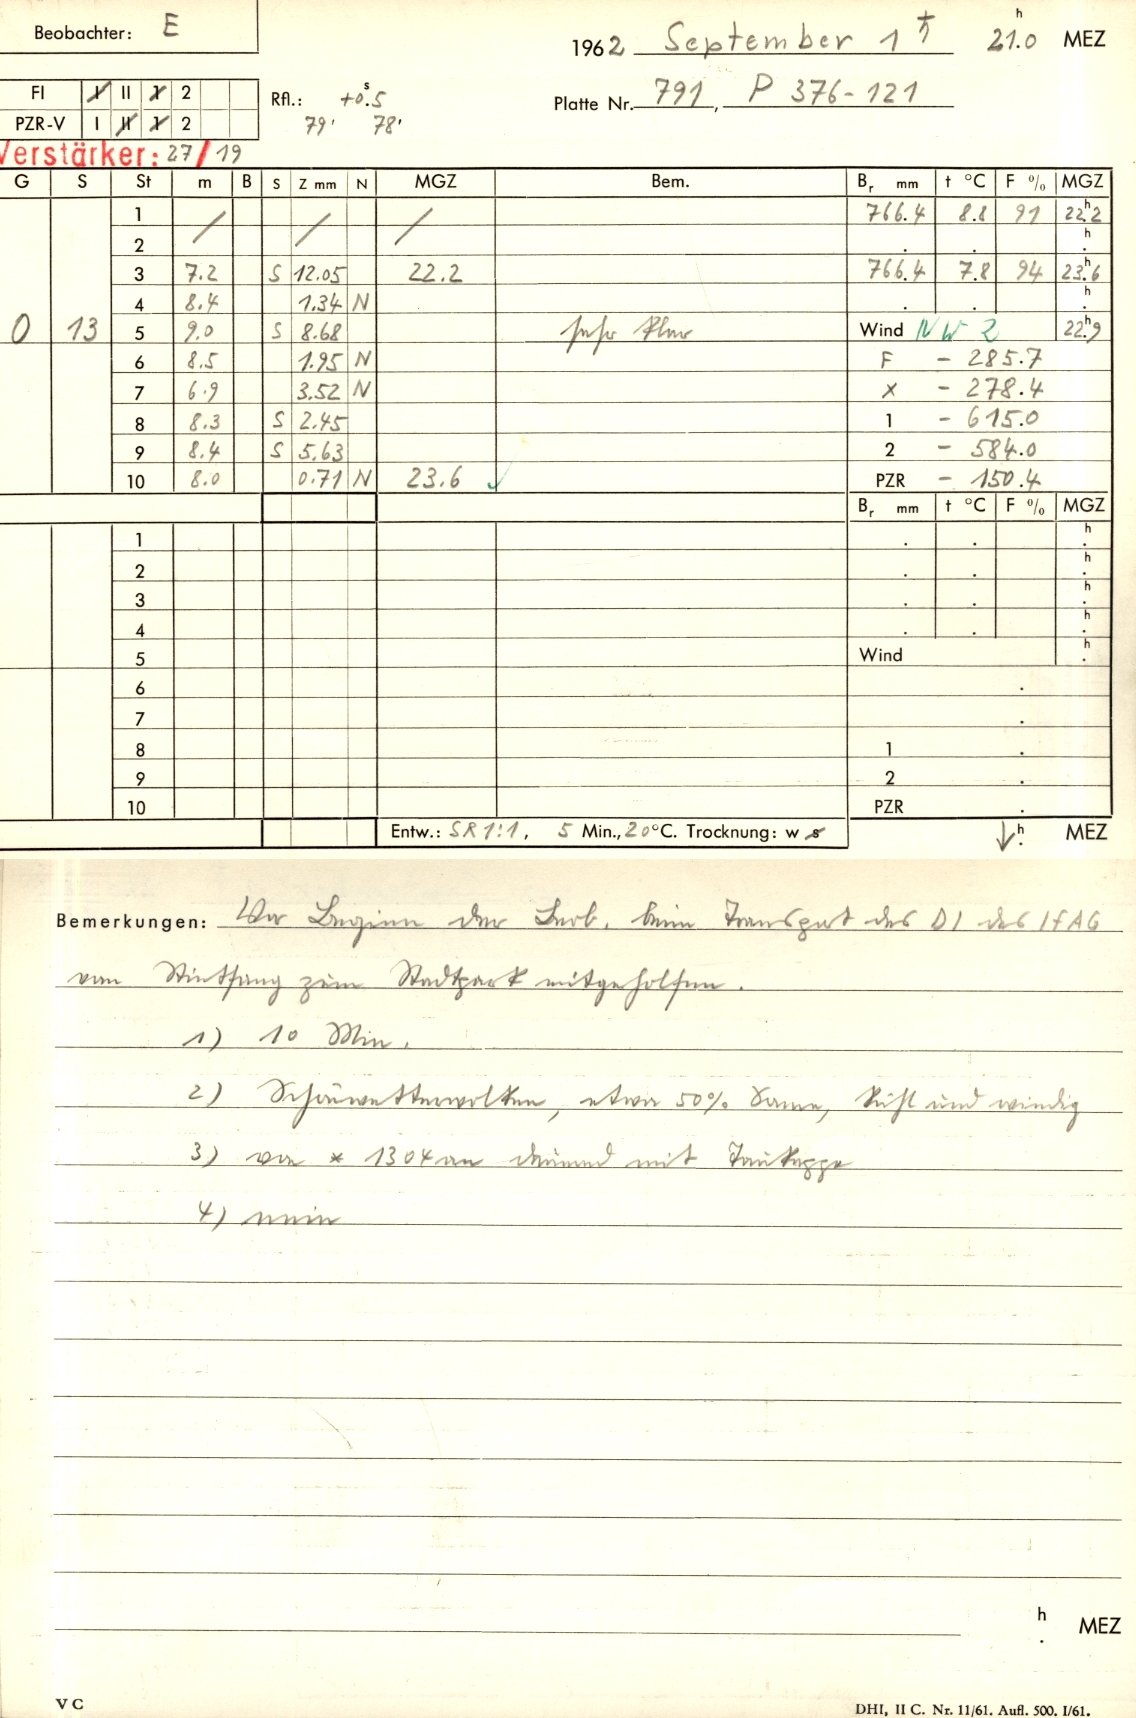 Beobachter: E
1962 September 1 ħ 21.0 h MEZ
FI I II 1 2
Rfl.: +0.5 s
Platte Nr. 791, P 376-121
PZR-V I II 1 2
79' 78'
Verstärker: 27/19
G S St m B S Z mm N MGZ Bem. Br mm t °C F % MGZ
1 / / / 766.4 8.8 91 22.2 h
2 . . . h
3 7.2 S 12.05 22.2 766.4 7.8 94 23.6 h
4 8.4 1.34 N . . . h
0 13 5 9.0 S 8.68 sehr klar Wind NW 2 22.9 h
6 8.5 1.95 N F - 285.7
7 6.9 3.52 N x - 278.4
8 8.3 S 2.45 1 - 615.0
9 8.4 S 5.63 2 - 584.0
10 8.0 0.71 N 23.6 ✓ PZR - 150.4
Br mm t °C F % MGZ
1 . . . h
2 . . . h
3 . . . h
4 . . . h
5 Wind . h
6 .
7 .
8 1 .
9 2 .
10 PZR .
Entw.: SR 1:1, 5 Min., 20 °C. Trocknung: w s ↓ . h MEZ
Bemerkungen: Vor Beginn der Beob. beim Transport des DI des IfAG
vom Stintfang zum Stadtpark mitgeholfen.
1) 10 Min.
2) Schönwetterwolken, etwa 50% Sonne, kühl und windig
3) von * 1304 an dauernd mit Taukappe
4) nein
. h MEZ
V C
DHI, II C. Nr. 11/61. Aufl. 500. I/61.